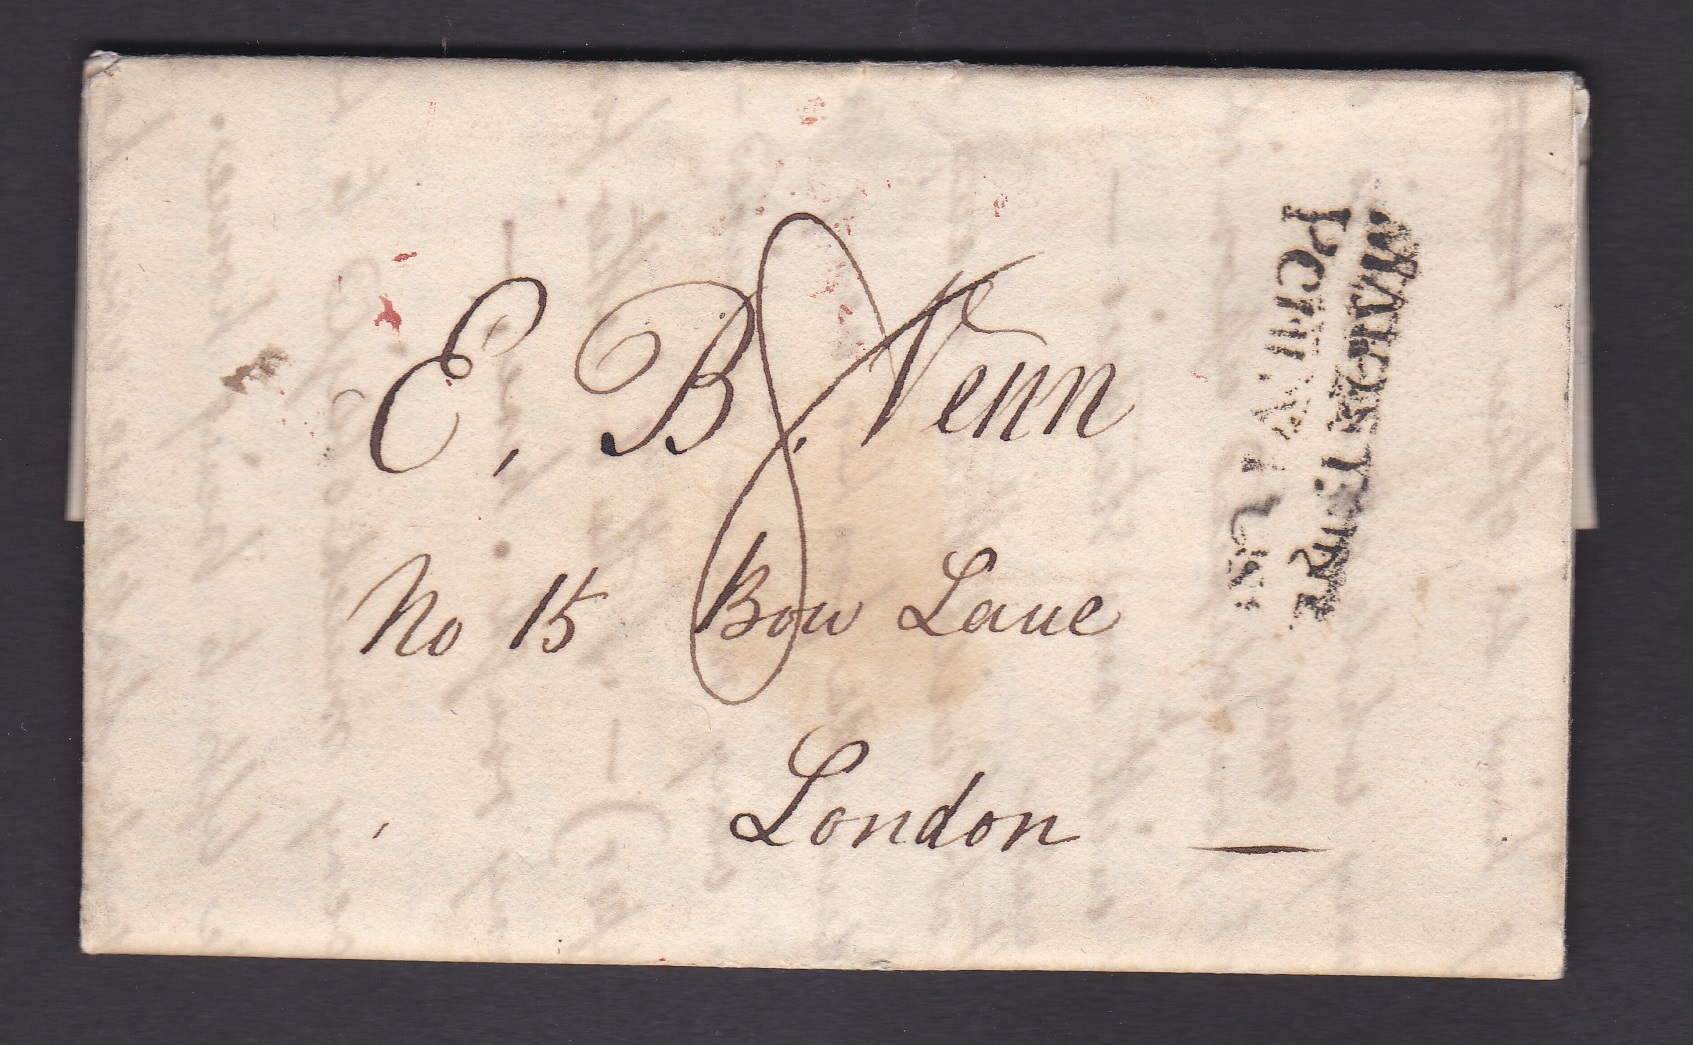 E. B. Venn
8
No 15 Bow Lane
London